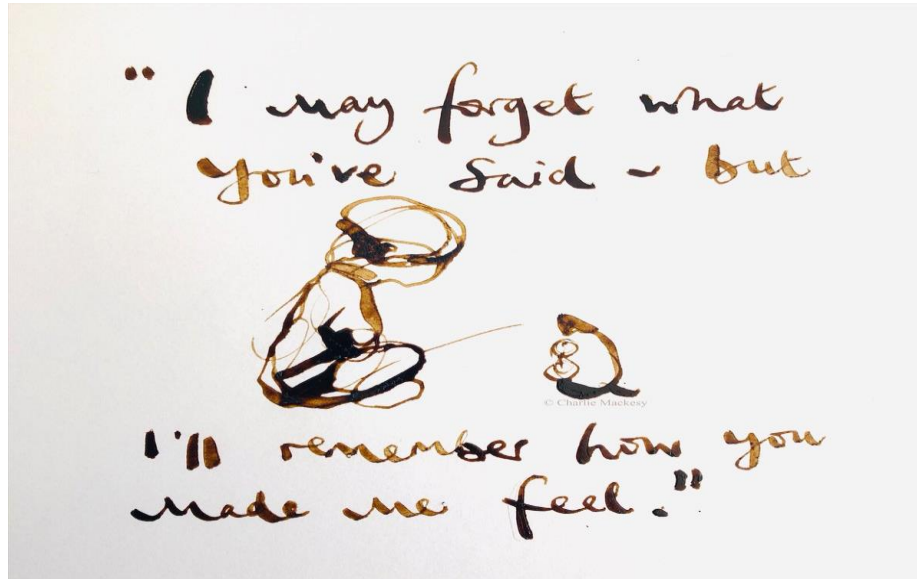 “I may forget what
you've said ~ but
© Charlie Mackesy
I'll remember how you
made me feel.”